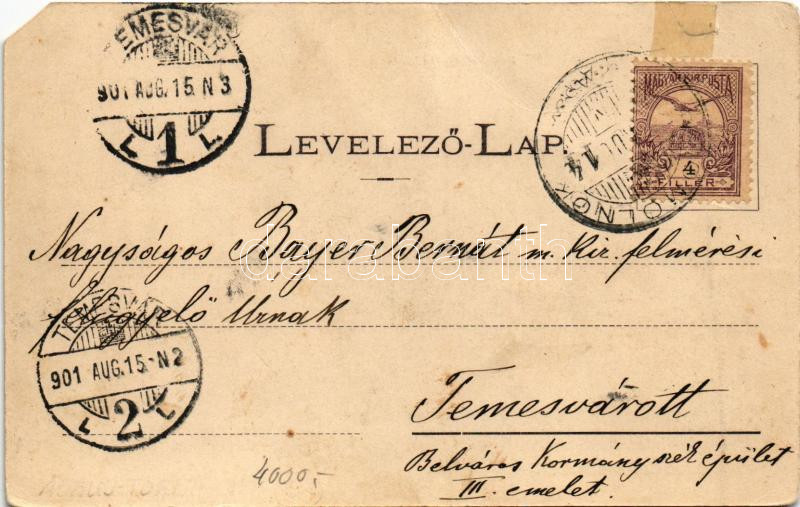 TEMESVÁR
901 AUG. 15. N 3
L 1 L
MAGYAR KIR. POSTA
4
FILLÉR
SZOLNOK
AUG 14
LEVELEZŐ-LAP.
Nagyságos Bayer Bernát m. kir. felmérési
felügyelő Urnak
darabanth
TEMESVÁR
901 AUG. 15. N 2
L 2 L
Temesvárott
Belváros Kormányszéképület
III. emelet.
4000,-